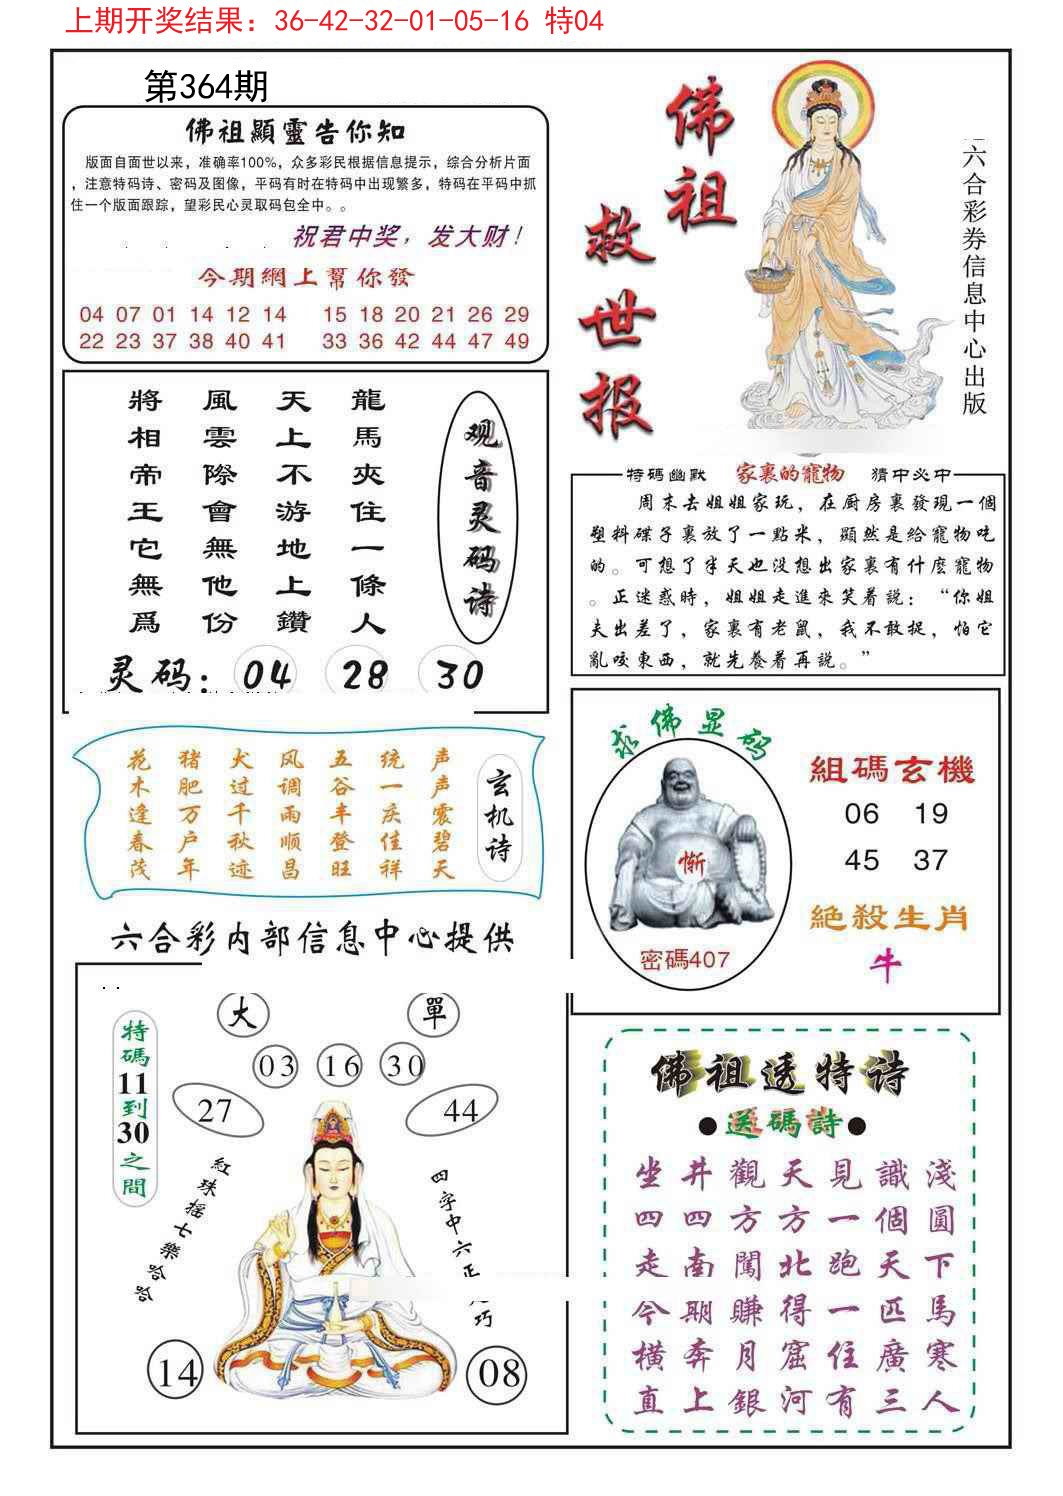 上期开奖结果：36-42-32-01-05-16 特04
第364期
佛祖顯靈告你知
版面自面世以来，准确率100%，众多彩民根据信息提示，综合分析片面
，注意特码诗、密码及图像，平码有时在特码中出现繁多，特码在平码中抓
住一个版面跟踪，望彩民心灵取码包全中。。
祝君中奖，发大财！
今期網上幫你發
04 07 01 14 12 14 15 18 20 21 26 29
22 23 37 38 40 41 33 36 42 44 47 49
佛祖
救世报
六合彩券信息中心出版
观音灵码诗
龍馬夾住一條人
天上不游地上鑽
風雲際會無他份
將相帝王它無爲
灵码：04 28 30
特碼幽默 家裏的寵物 猜中必中
周末去姐姐家玩，在厨房裏發現一個
塑料碟子裏放了一點米，顯然是给寵物吃
的。可想了半天也没想出家裏有什麽寵物
。正迷惑時，姐姐走進來笑着説：“你姐
夫出差了，家裏有老鼠，我不敢捉，怕它
亂咬東西，就先養着再説。”
玄机诗
声声震碧天
统一庆佳祥
五谷丰登旺
风调雨顺昌
犬过千秋迹
猪肥万户年
花木逢春茂
求佛显码
惭
密碼407
組碼玄機
06 19
45 37
絶殺生肖
牛
六合彩内部信息中心提供
大 單
03 16 30
27 44
特碼11到30之間
紅珠摇七樂哈哈
四字中六正
巧
14 08
佛祖透特诗
●送碼詩●
坐井觀天見識淺
四四方方一個圓
走南闖北跑天下
今期賺得一匹馬
横奔月窟住廣寒
直上銀河有三人